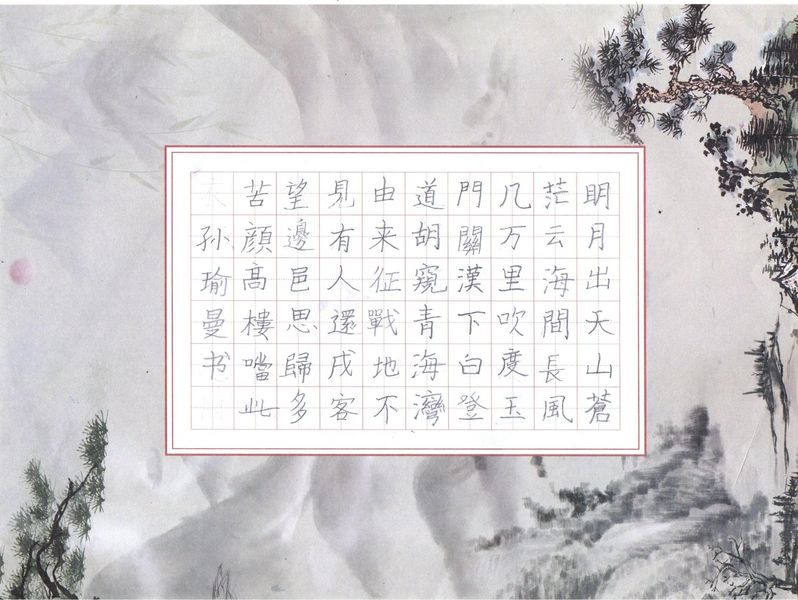 明月出天山蒼
茫云海間長風
几万里吹度玉
門關漢下白登
道胡窺青海灣
由来征戰地不
見有人還戌客
望邊邑思歸多
苦顔高樓噹此
孙瑜曼书